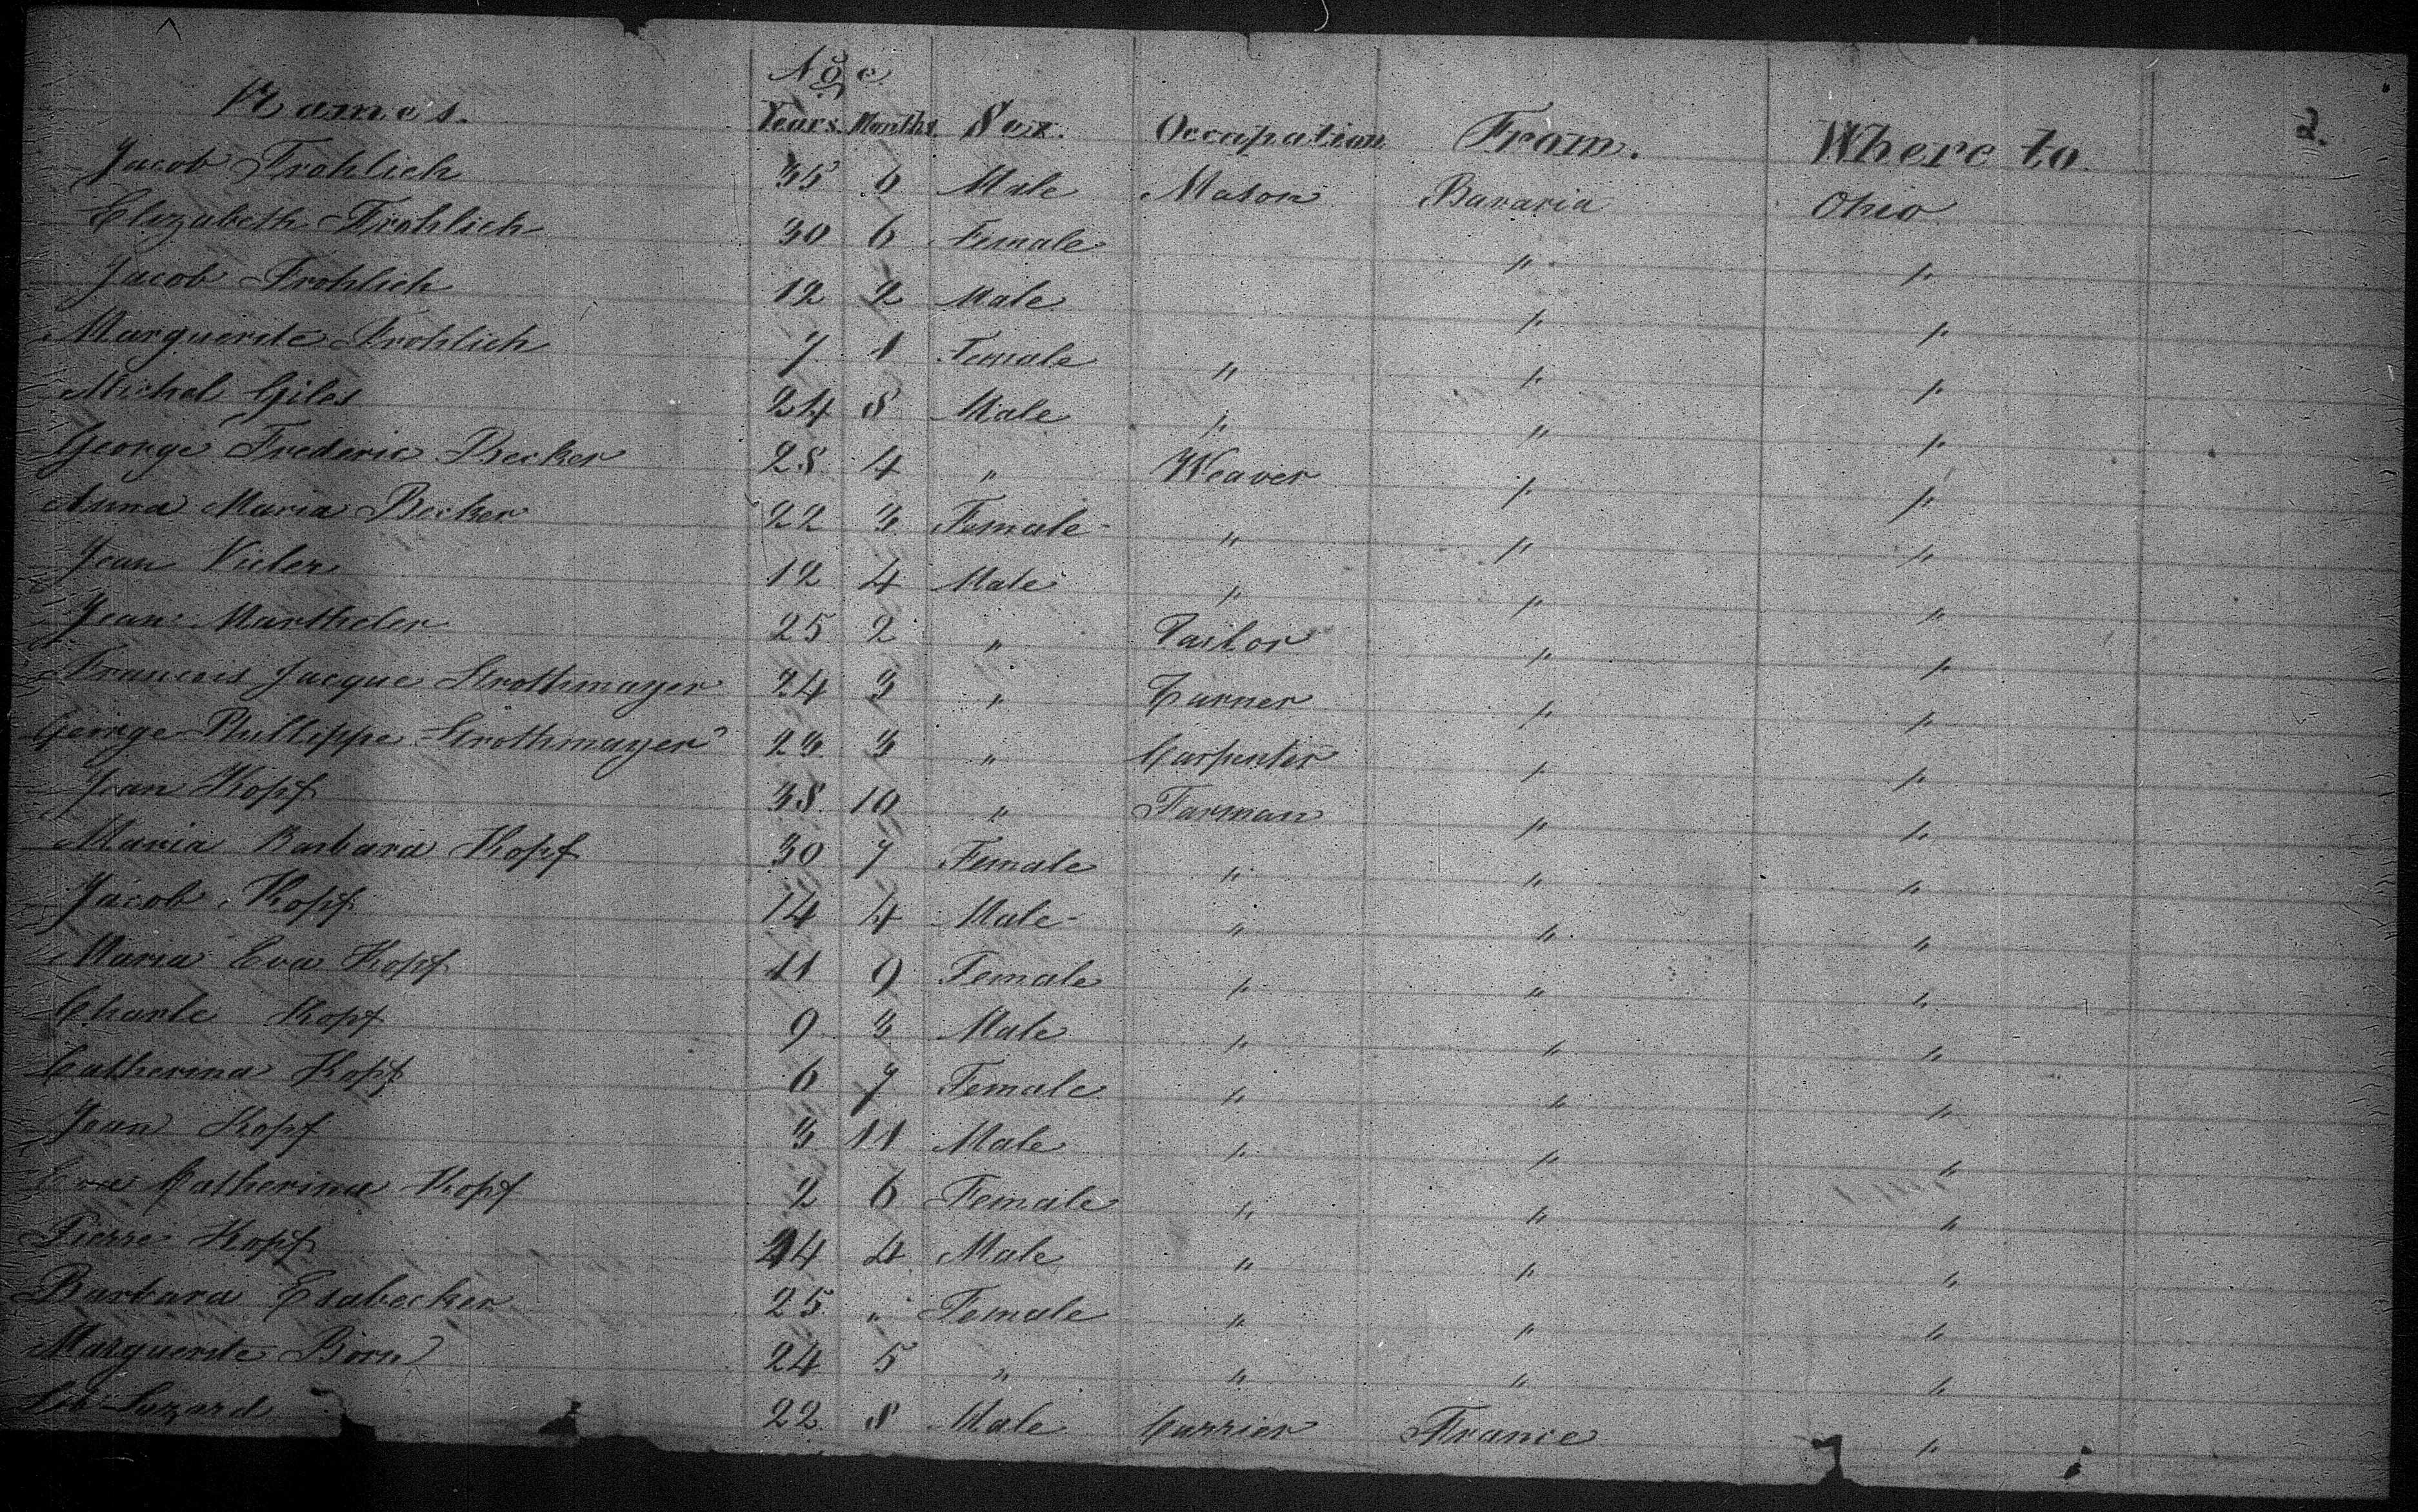 Age
Names. Years. Months Sex. Occupation From. Where to 2.
Jacob Frohlich 35 6 Male Mason Bavaria Ohio
Elizabeth Frohlich 30 6 Female " "
Jacob Frohlich 12 2 Male " "
Marguerite Frohlich 7 1 Female " " "
Michel Giles 24 8 Male " " "
George Frederic Becker 28 4 " Weaver " "
Anna Maria Becker 22 3 Female " " "
Jean Vieler 12 4 Male " " "
Jean Martheler 25 2 " Tailor " "
Francois Jacque Strothmayer 24 3 " Turner " "
George Phillippe Strothmayer 23 3 " Carpenter " "
Jean Kopf 38 10 " Farman " "
Maria Barbara Kopf 30 7 Female " " "
Jacob Kopf 14 4 Male " " "
Maria Eva Kopf 11 9 Female " " "
Charle Kopf 9 3 Male " " "
Catherina Kopf 6 7 Female " " "
Jean Kopf 3 11 Male " " "
Eva Catherina Kopf 2 6 Female " " "
Pierre Kopf 24 4 Male " " "
Barbara Esabecker 25 " Female " " "
Marguerite Born 24 5 " " " "
Lazard 22 8 Male Currier France "